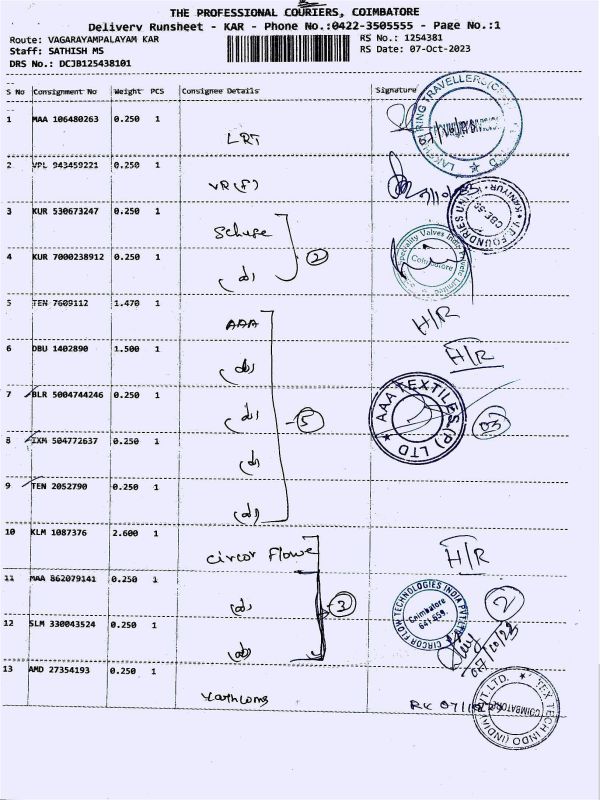 THE PROFESSIONAL COURIERS, COIMBATORE
Delivery Runsheet - KAR - Phone No.:0422-3505555 - Page No.:1
Route: VAGARAYAMPALAYAM KAR
RS No.: 1254381
Staff: SATHISH MS
RS Date: 07-Oct-2023
DRS No.: DCJB125438101
S No Consignment No Weight PCS Consignee Details Signature
1 MAA 106480263 0.250 1
LRT
2 VPL 943459221 0.250 1
VR (F)
3 KUR 530673247 0.250 1
4 KUR 7000238912 0.250 1
(d)
2
5 TEN 7609112 1.470 1
AAA
H/R
6 DBU 1402890 1.500 1
(d)
H/R
7 BLR 5004744246 0.250 1
(d)
5
AAA TEXTILES (P) LTD
03
8 IXM 504772637 0.250 1
(d)
9 TEN 2052790 0.250 1
(d)
10 KLM 1087376 2.600 1
Circor Flowe
H/R
11 MAA 862079141 0.250 1
(d)
3
CIRCOR FLOW TECHNOLOGIES INDIA PVT LTD
Coimbatore
641 659.
2
12 SLM 330043524 0.250 1
(d)
07/10/23
13 AMD 27354193 0.250 1
RK
COIMBATORE